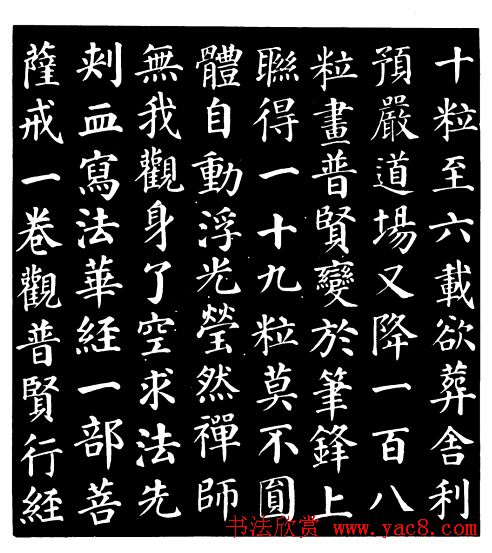 十粒至六載欲葬舍利
預嚴道場又降一百八
粒畫普賢變於筆鋒上
聮得一十九粒莫不圓
體自動浮光瑩然禪師
無我觀身了空求法先
刾血寫法華経一部菩
薩戒一卷觀普賢行経
书法欣赏 www.yac8.com